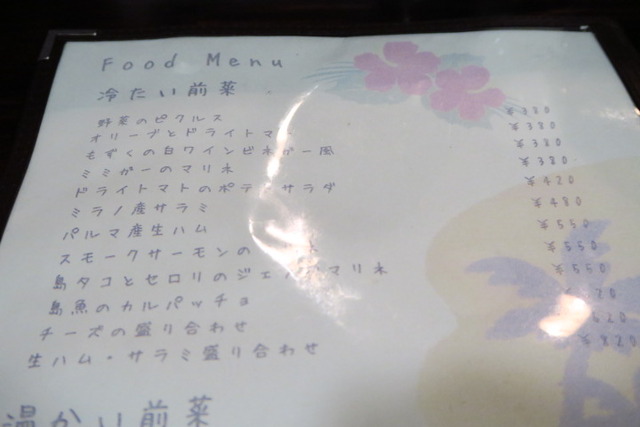 Food Menu
冷たい前菜
野菜のピクルス ¥380
オリーブとドライトマ ¥380
もずくの白ワインビネガー風 ¥380
ミミガーのマリネ ¥380
ドライトマトのポテ サラダ ¥420
ミラノ産サラミ ¥480
パルマ産生ハム ¥550
スモークサーモンの ¥550
島タコとセロリのジェノバマリネ ¥550
島魚のカルパッチョ 20
チーズの盛り合わせ 620
生ハム・サラミ盛り合わせ ¥820
温かい前菜